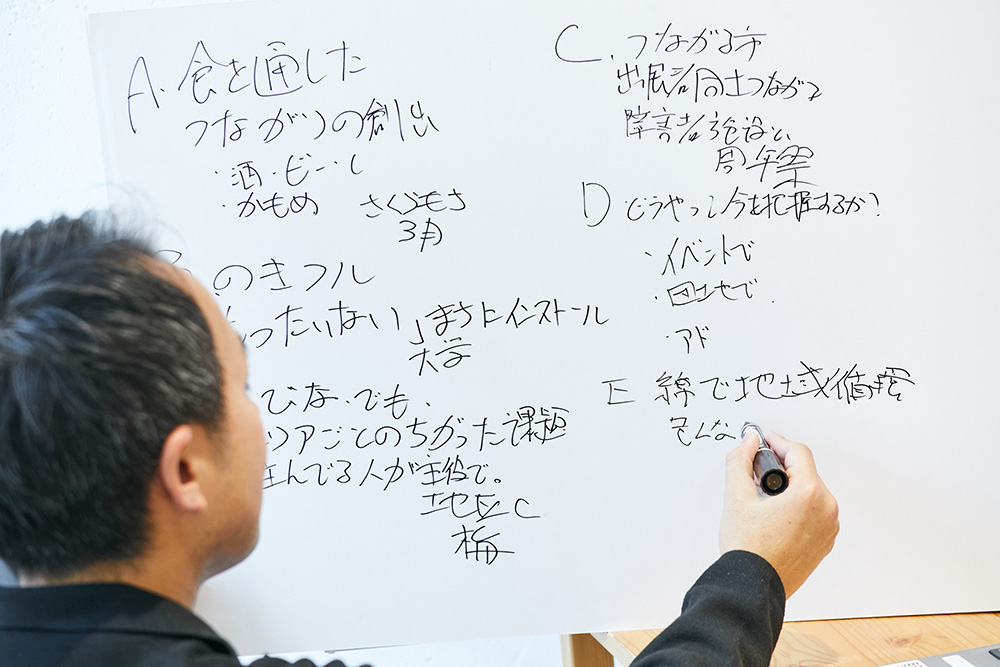 A. 食を通した
つながりの創出
・酒・ビール
・かもめ さくらもさ
3月
のきフル
ったいない」まさにインストール
大学
ひな・でも、
リアごとのちがった課題
住んでる人が主役で。
地区C
梅
C. つながる市
出展者同士つながる
障害者施設と
周年祭
D どうやって今を把握するか?
・イベントで
・団地で
・アド
E 線で地域循環
そんな